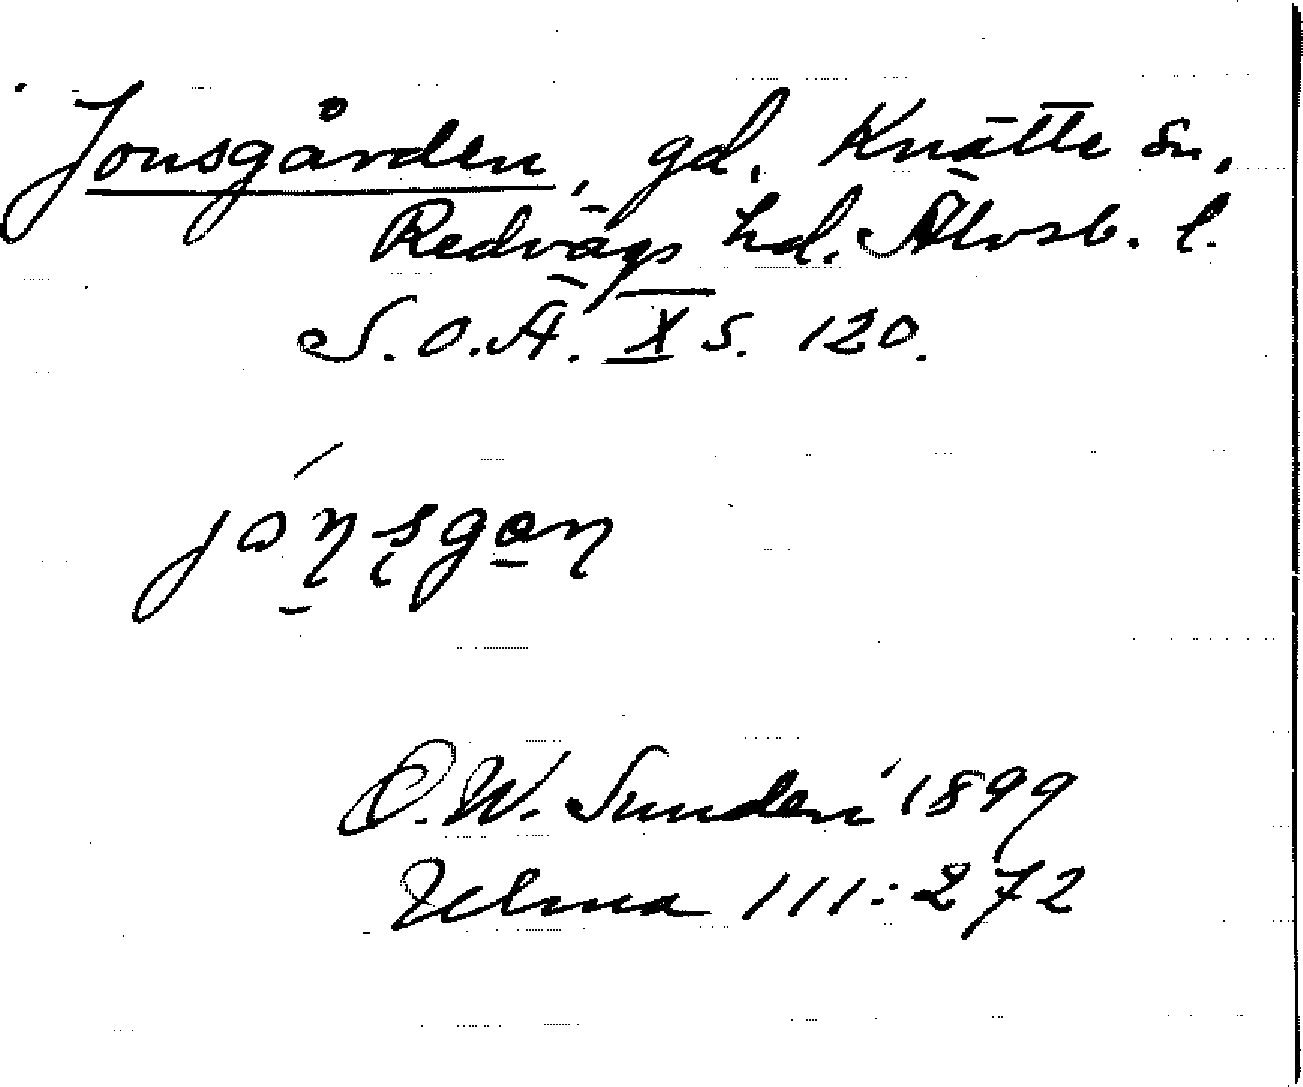 Jonsgården, gd. Knätte sn,
Redvägs hd. Älvsb. l.
S.O.Ä. X s. 120.
O.W. Sundén 1899
Ulma 111:272